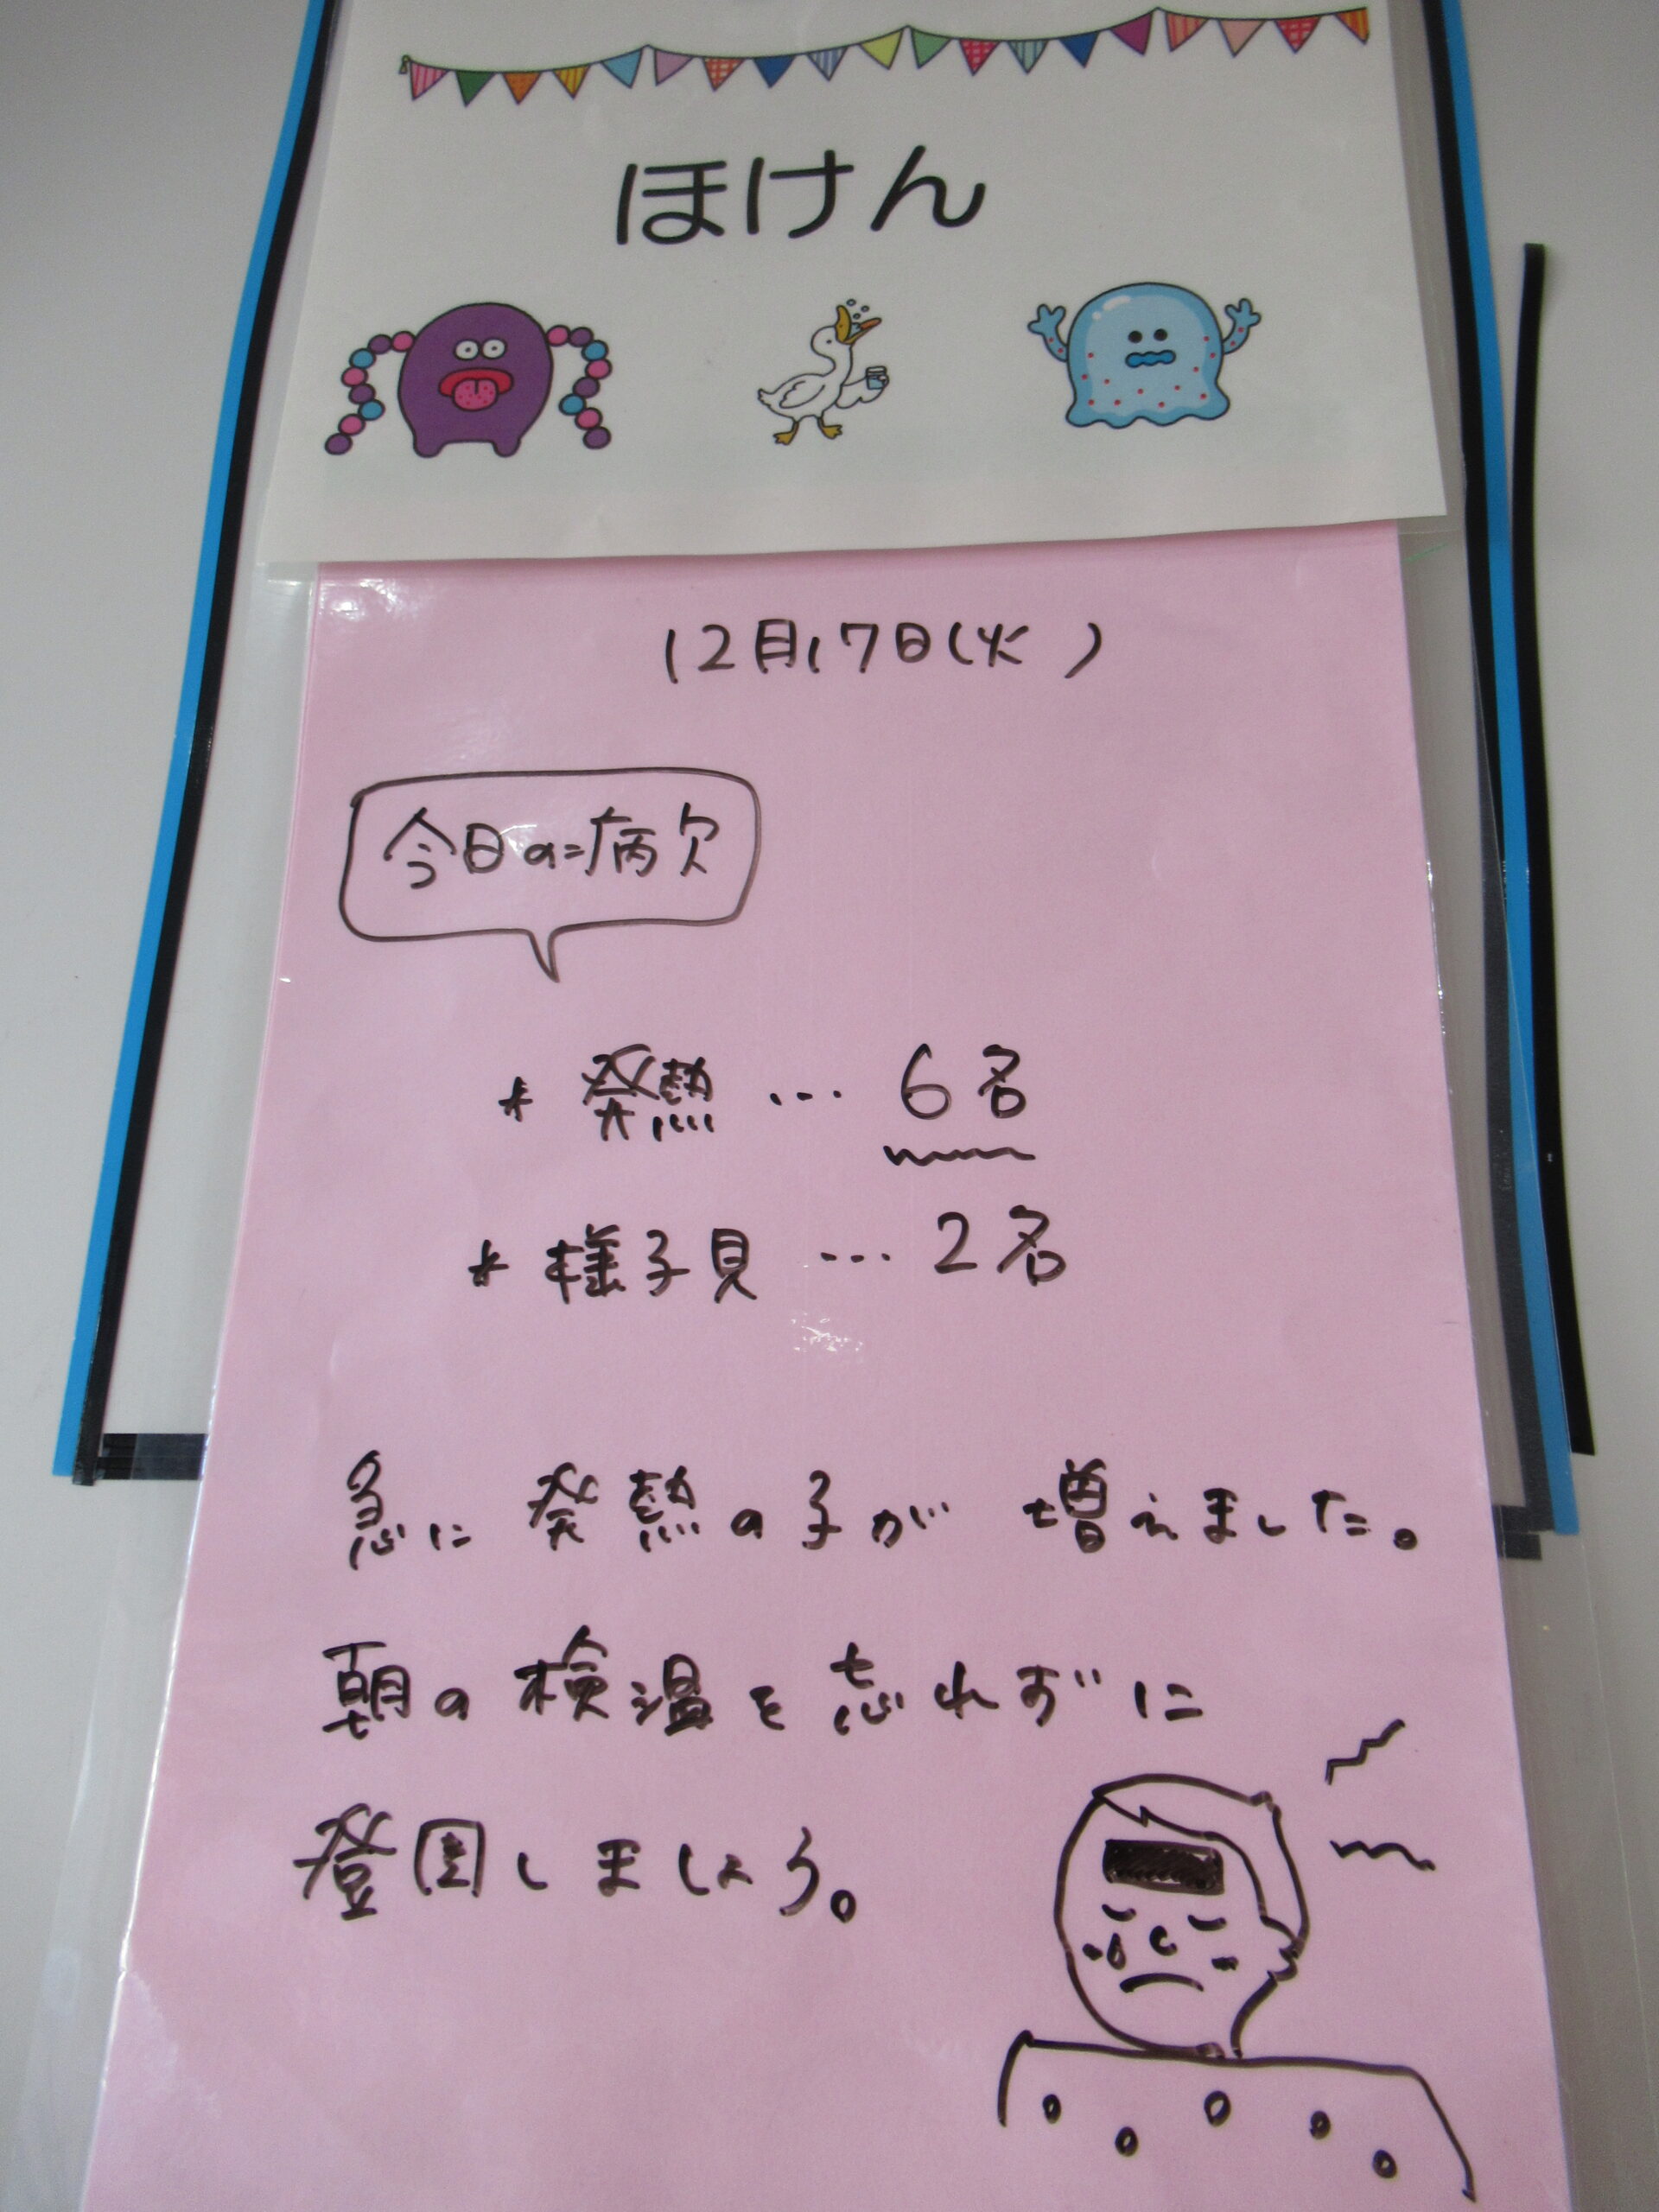 ほけん
12月17日(火)
今日の病欠
* 発熱 … 6名
* 様子見 … 2名
急に発熱の子が増えました。
朝の検温を忘れずに
登園しましょう。